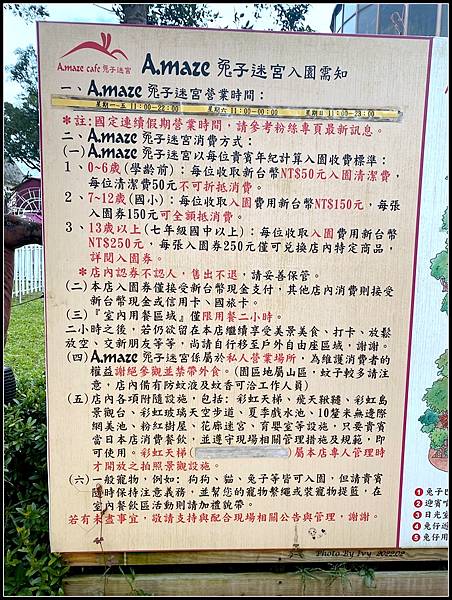 A.maze cafe 兔子迷宮
A.maze 兔子迷宮入園需知
一、A.maze 兔子迷宮營業時間：
星期一~五 11:00~22:00 星期六 11:00~00:00 星期日 11:00~23:00
＊註:國定連續假期營業時間，請參考粉絲專頁最新訊息。
二、A.maze 兔子迷宮消費方式：
(一)A.maze 兔子迷宮以每位貴賓年紀計算入園收費標準：
1、0~6歲(學齡前)：每位收取新台幣NT$50元入園清潔費，
每位清潔費50元不可折抵消費。
2、7~12歲(國小)：每位收取入園費用新台幣NT$150元，每張
入園券150元可全額抵消費。
3、13歲以上(七年級國中以上)：每位收取入園費用新台幣
NT$250元，每張入園券250元僅可兌換店內特定商品，
詳閱入園券。
＊店內認券不認人，售出不退，請妥善保管。
(二)本店入園券僅接受新台幣現金支付，其他店內消費則接受
新台幣現金或信用卡、國旅卡。
(三)『室內用餐區域』僅限用餐二小時。
二小時之後，若仍欲留在本店繼續享受美景美食、打卡、放鬆
放空、交新朋友等等，尚請自行移至戶外自由座區域，謝謝。
(四)A.maze 兔子迷宮係屬於私人營業場所，為維護消費者的
權益謝絕參觀並禁帶外食。(園區地屬山區，蚊子較多請注
意，店內備有防蚊液及蚊香可洽工作人員)
(五)店內各項附隨設施，包括：彩虹天梯、飛天鞦韆、彩虹島
景觀台、彩虹玻璃天空步道、夏季戲水池、10釐米無邊際
網美池、粉紅樹屋、花廊迷宮、育嬰室等設施，只要貴賓
當日本店消費餐飲，並遵守現場相關管理措施及規範，即
可使用。彩虹天梯( )屬本店專人管理時
才開放之拍照景觀設施。
(六)一般寵物，例如：狗狗、貓、兔子等皆可入園，但請貴賓
隨時保持注意義務，並幫您的寵物繫繩或裝寵物提籃，在
室內餐飲區活動則請加禮貌帶。
若有未盡事宜，敬請支持與配合現場相關公告與管理，謝謝。
1 兔子
2 迎賓
3 日光室
4 兔仔
5 兔仔用
Photo By Ivy 2022.02